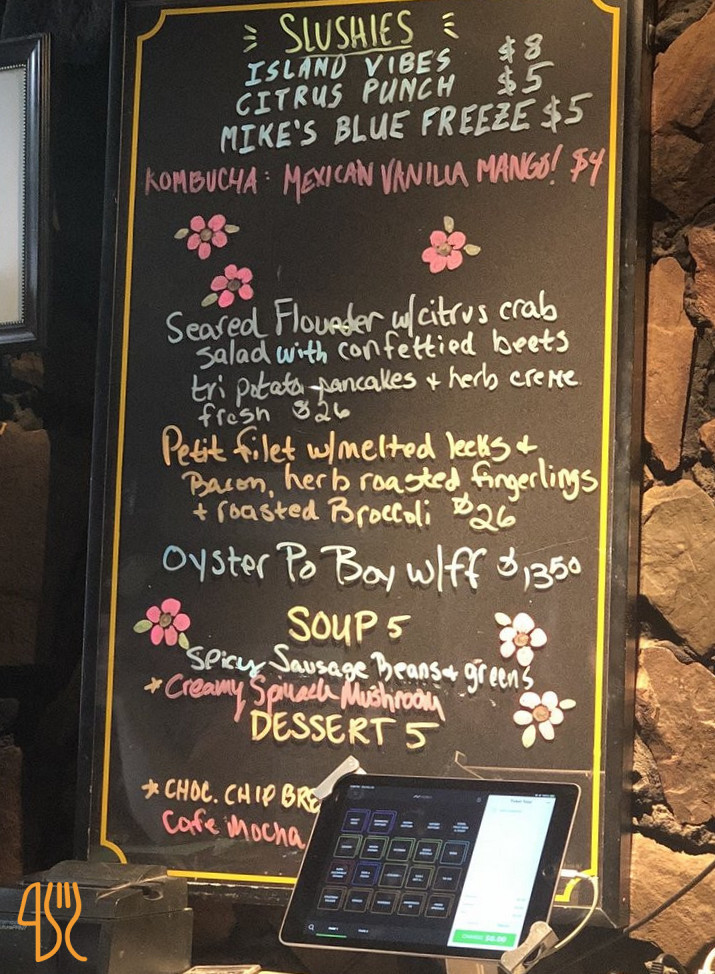 SLUSHIES
ISLAND VIBES $8
CITRUS PUNCH $5
MIKE'S BLUE FREEZE $5
KOMBUCHA: MEXICAN VANILLA MANGO! $4
Seared Flounder w/citrus crab
salad with confettied beets
tri potato pancakes + herb creme
fresh $26
Petit filet w/melted leeks +
Bacon, herb roasted fingerlings
+ roasted Broccoli $26
Oyster Po Boy w/ff $1350
SOUP 5
Spicy Sausage Beans + greens
* Creamy Spinach Mushroom
DESSERT 5
* CHOC. CHIP BRE
Cafe Mocha